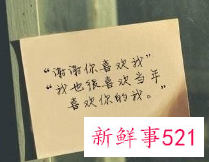 “谢谢你喜欢我”
“我也很喜欢当年
喜欢你的我。”
新鲜事521